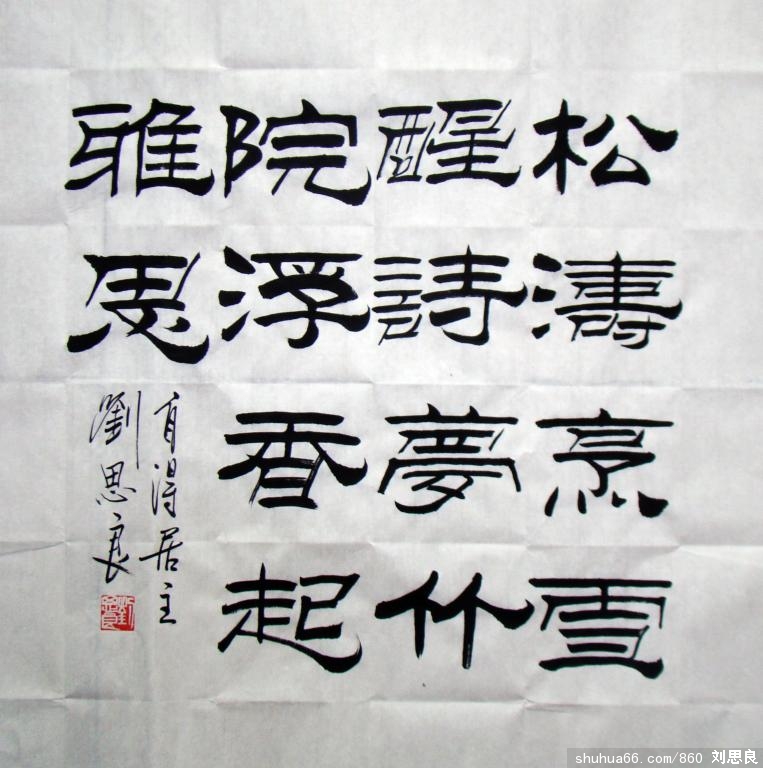 松濤烹雪
醒詩夢竹
院浮香起
雅思
自得居主
劉思良
shuhua66.com/860 刘思良